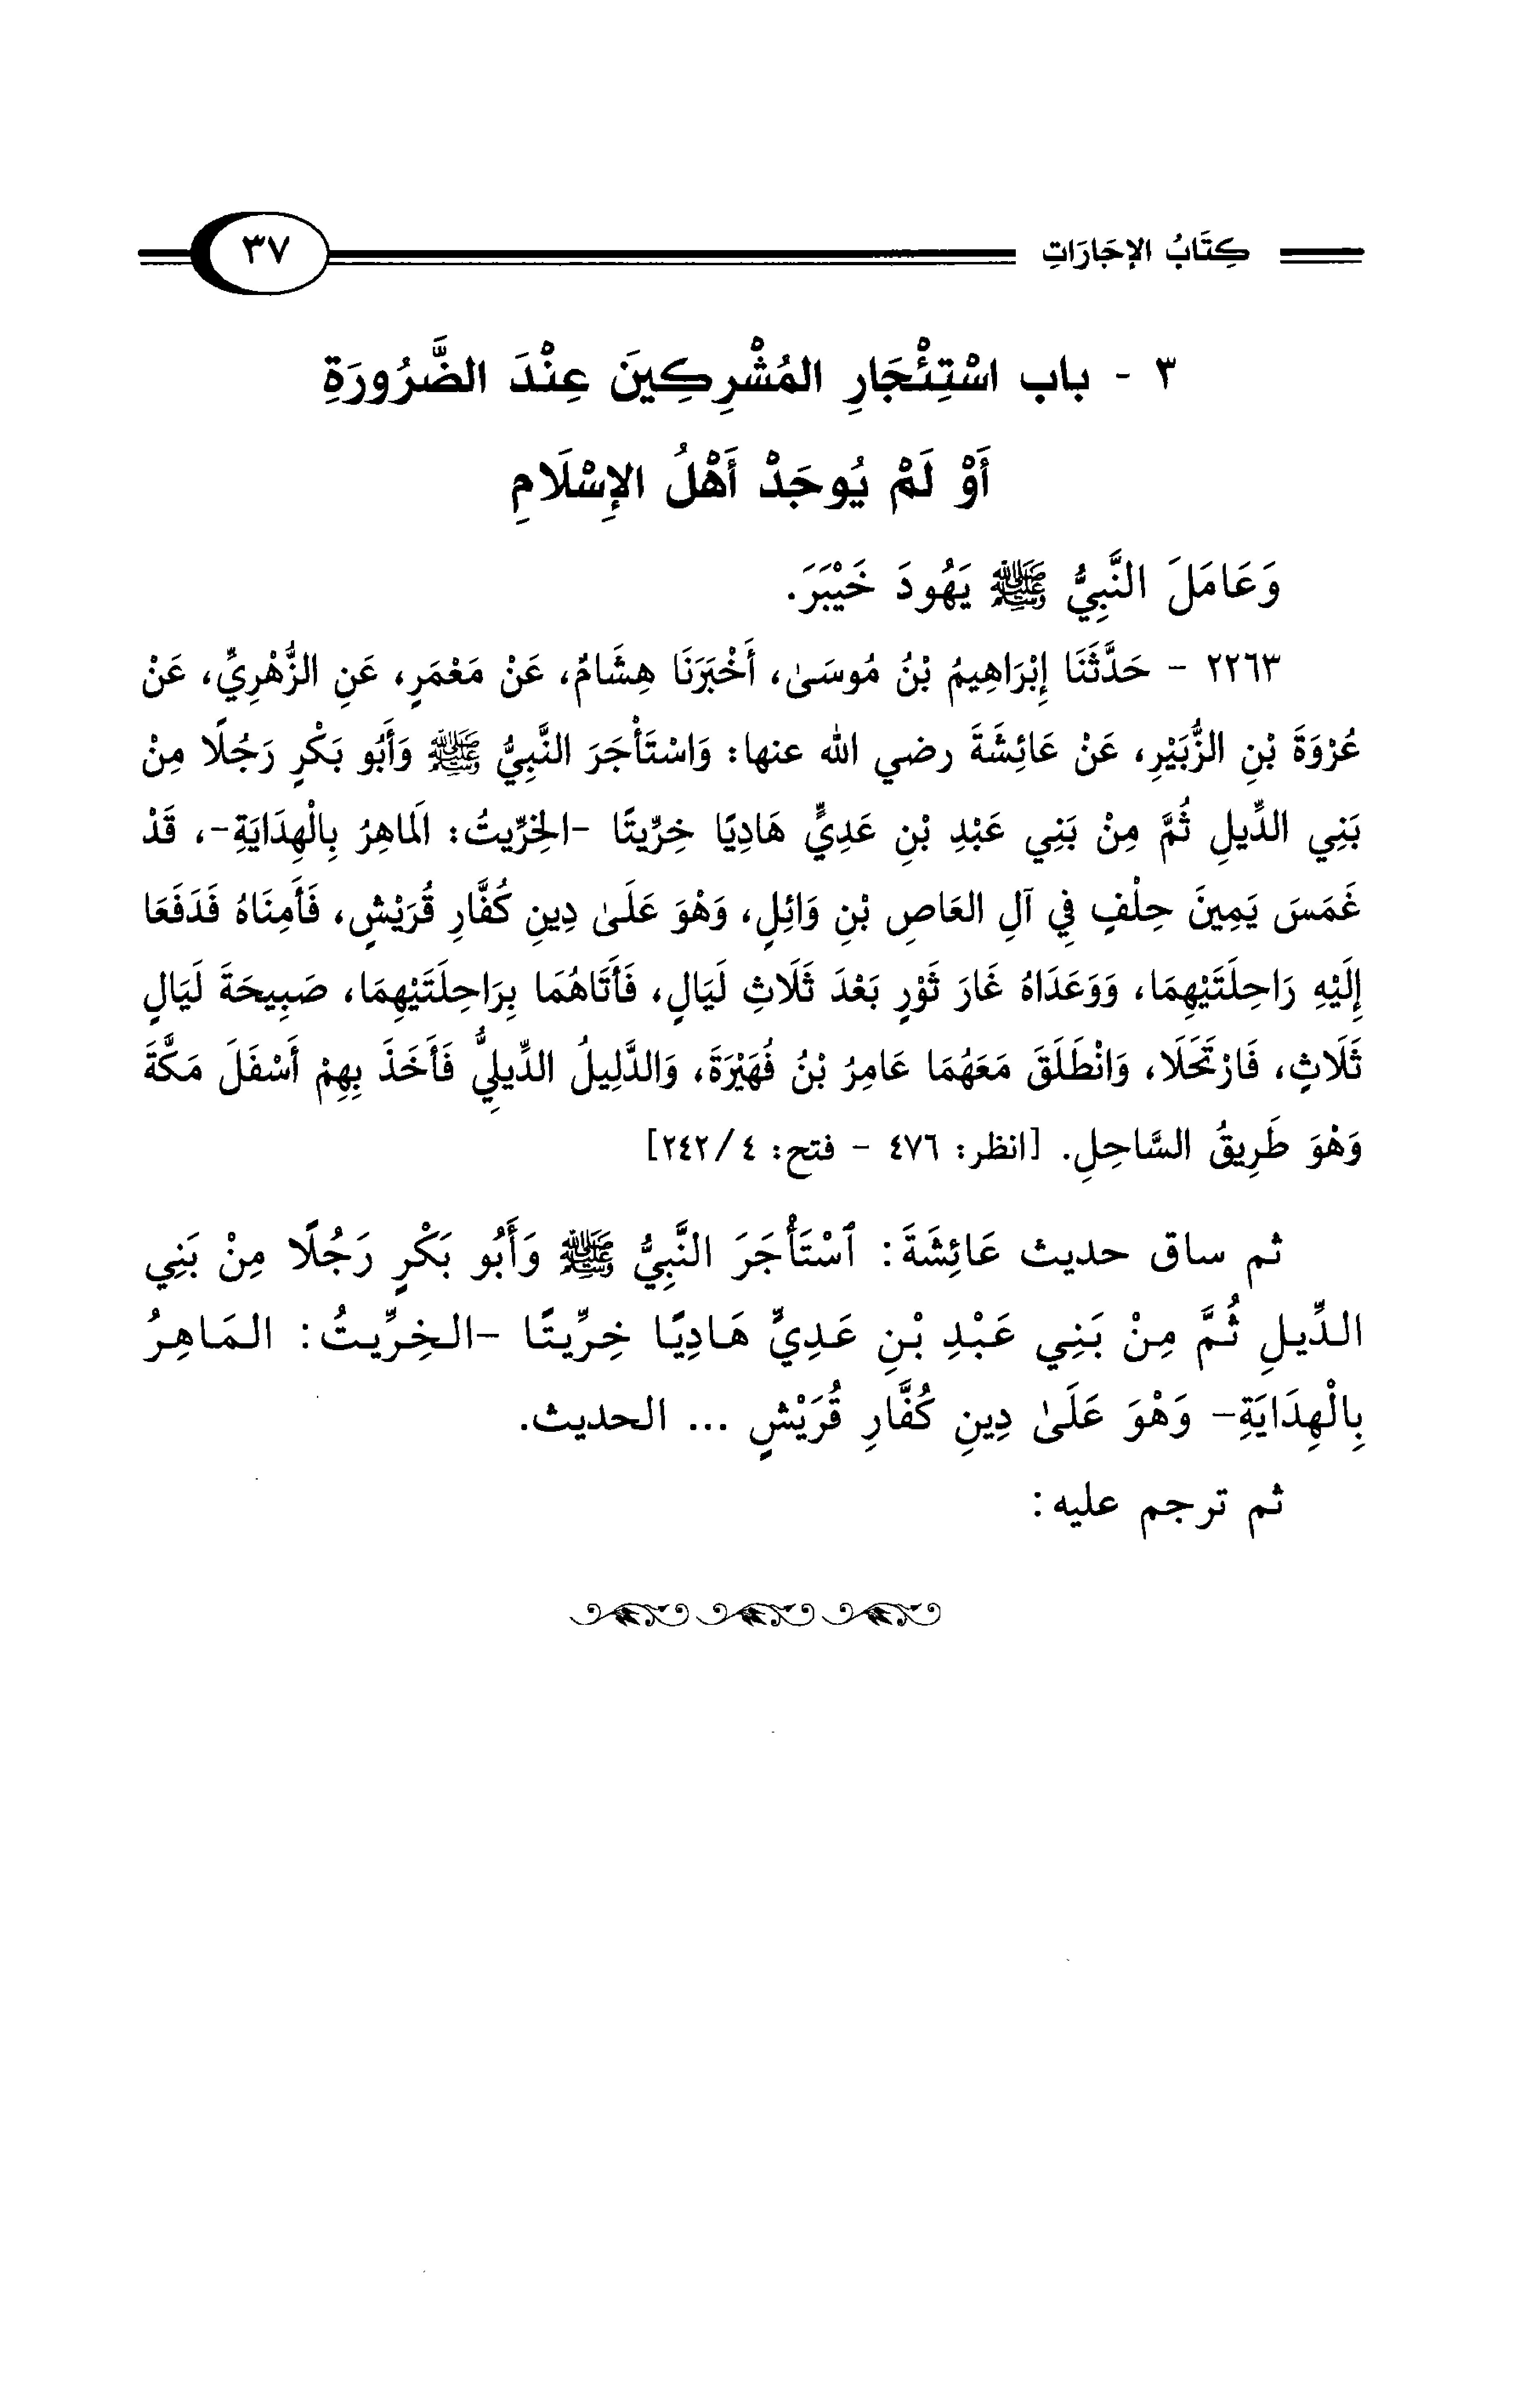 كِتَابُ الإجَارَاتِ
٣٧
٣ - باب اسْتِئْجَارِ المُشْرِكِينَ عِنْدَ الضَّرُورَةِ
أَوْ لَمْ يُوجَدْ أَهْلُ الإِسْلَامِ
وَعَامَلَ النَّبِيُّ ﷺ يَهُودَ خَيْبَرَ.
٢٢٦٣ - حَدَّثَنَا إِبْرَاهِيمُ بْنُ مُوسَىٰ، أَخْبَرَنَا هِشَامٌ، عَنْ مَعْمَرٍ، عَنِ الزُّهْرِيِّ، عَنْ
عُرْوَةَ بْنِ الزُّبَيْرِ، عَنْ عَائِشَةَ رضي الله عنها: وَاسْتَأْجَرَ النَّبِيُّ ﷺ وَأَبُو بَكْرٍ رَجُلًا مِنْ
بَنِي الدِّيلِ ثُمَّ مِنْ بَنِي عَبْدِ بْنِ عَدِيٍّ هَادِيًا خِرِّيتًا -الخِرِّيتُ: المَاهِرُ بِالْهِدَايَةِ-، قَدْ
غَمَسَ يَمِينَ حِلْفٍ فِي آلِ العَاصِ بْنِ وَائِلٍ، وَهْوَ عَلَىٰ دِينِ كُفَّارِ قُرَيْشٍ، فَأَمِنَاهُ فَدَفَعَا
إِلَيْهِ رَاحِلَتَيْهِمَا، وَوَعَدَاهُ غَارَ ثَوْرٍ بَعْدَ ثَلَاثِ لَيَالٍ، فَأَتَاهُمَا بِرَاحِلَتَيْهِمَا، صَبِيحَةَ لَيَالٍ
ثَلَاثٍ، فَارْتَحَلَا، وَانْطَلَقَ مَعَهُمَا عَامِرُ بْنُ فُهَيْرَةَ، وَالدَّلِيلُ الدِّيلِيُّ فَأَخَذَ بِهِمْ أَسْفَلَ مَكَّةَ
وَهْوَ طَرِيقُ السَّاحِلِ. [انظر: ٤٧٦ - فتح: ٤/٢٤٢]
ثم ساق حديث عَائِشَةَ: ٱسْتَأْجَرَ النَّبِيُّ ﷺ وَأَبُو بَكْرٍ رَجُلًا مِنْ بَنِي
الدِّيلِ ثُمَّ مِنْ بَنِي عَبْدِ بْنِ عَدِيٍّ هَادِيًا خِرِّيتًا -الخِرِّيتُ: المَاهِرُ
بِالْهِدَايَةِ- وَهْوَ عَلَىٰ دِينِ كُفَّارِ قُرَيْشٍ ... الحديث.
ثم ترجم عليه: